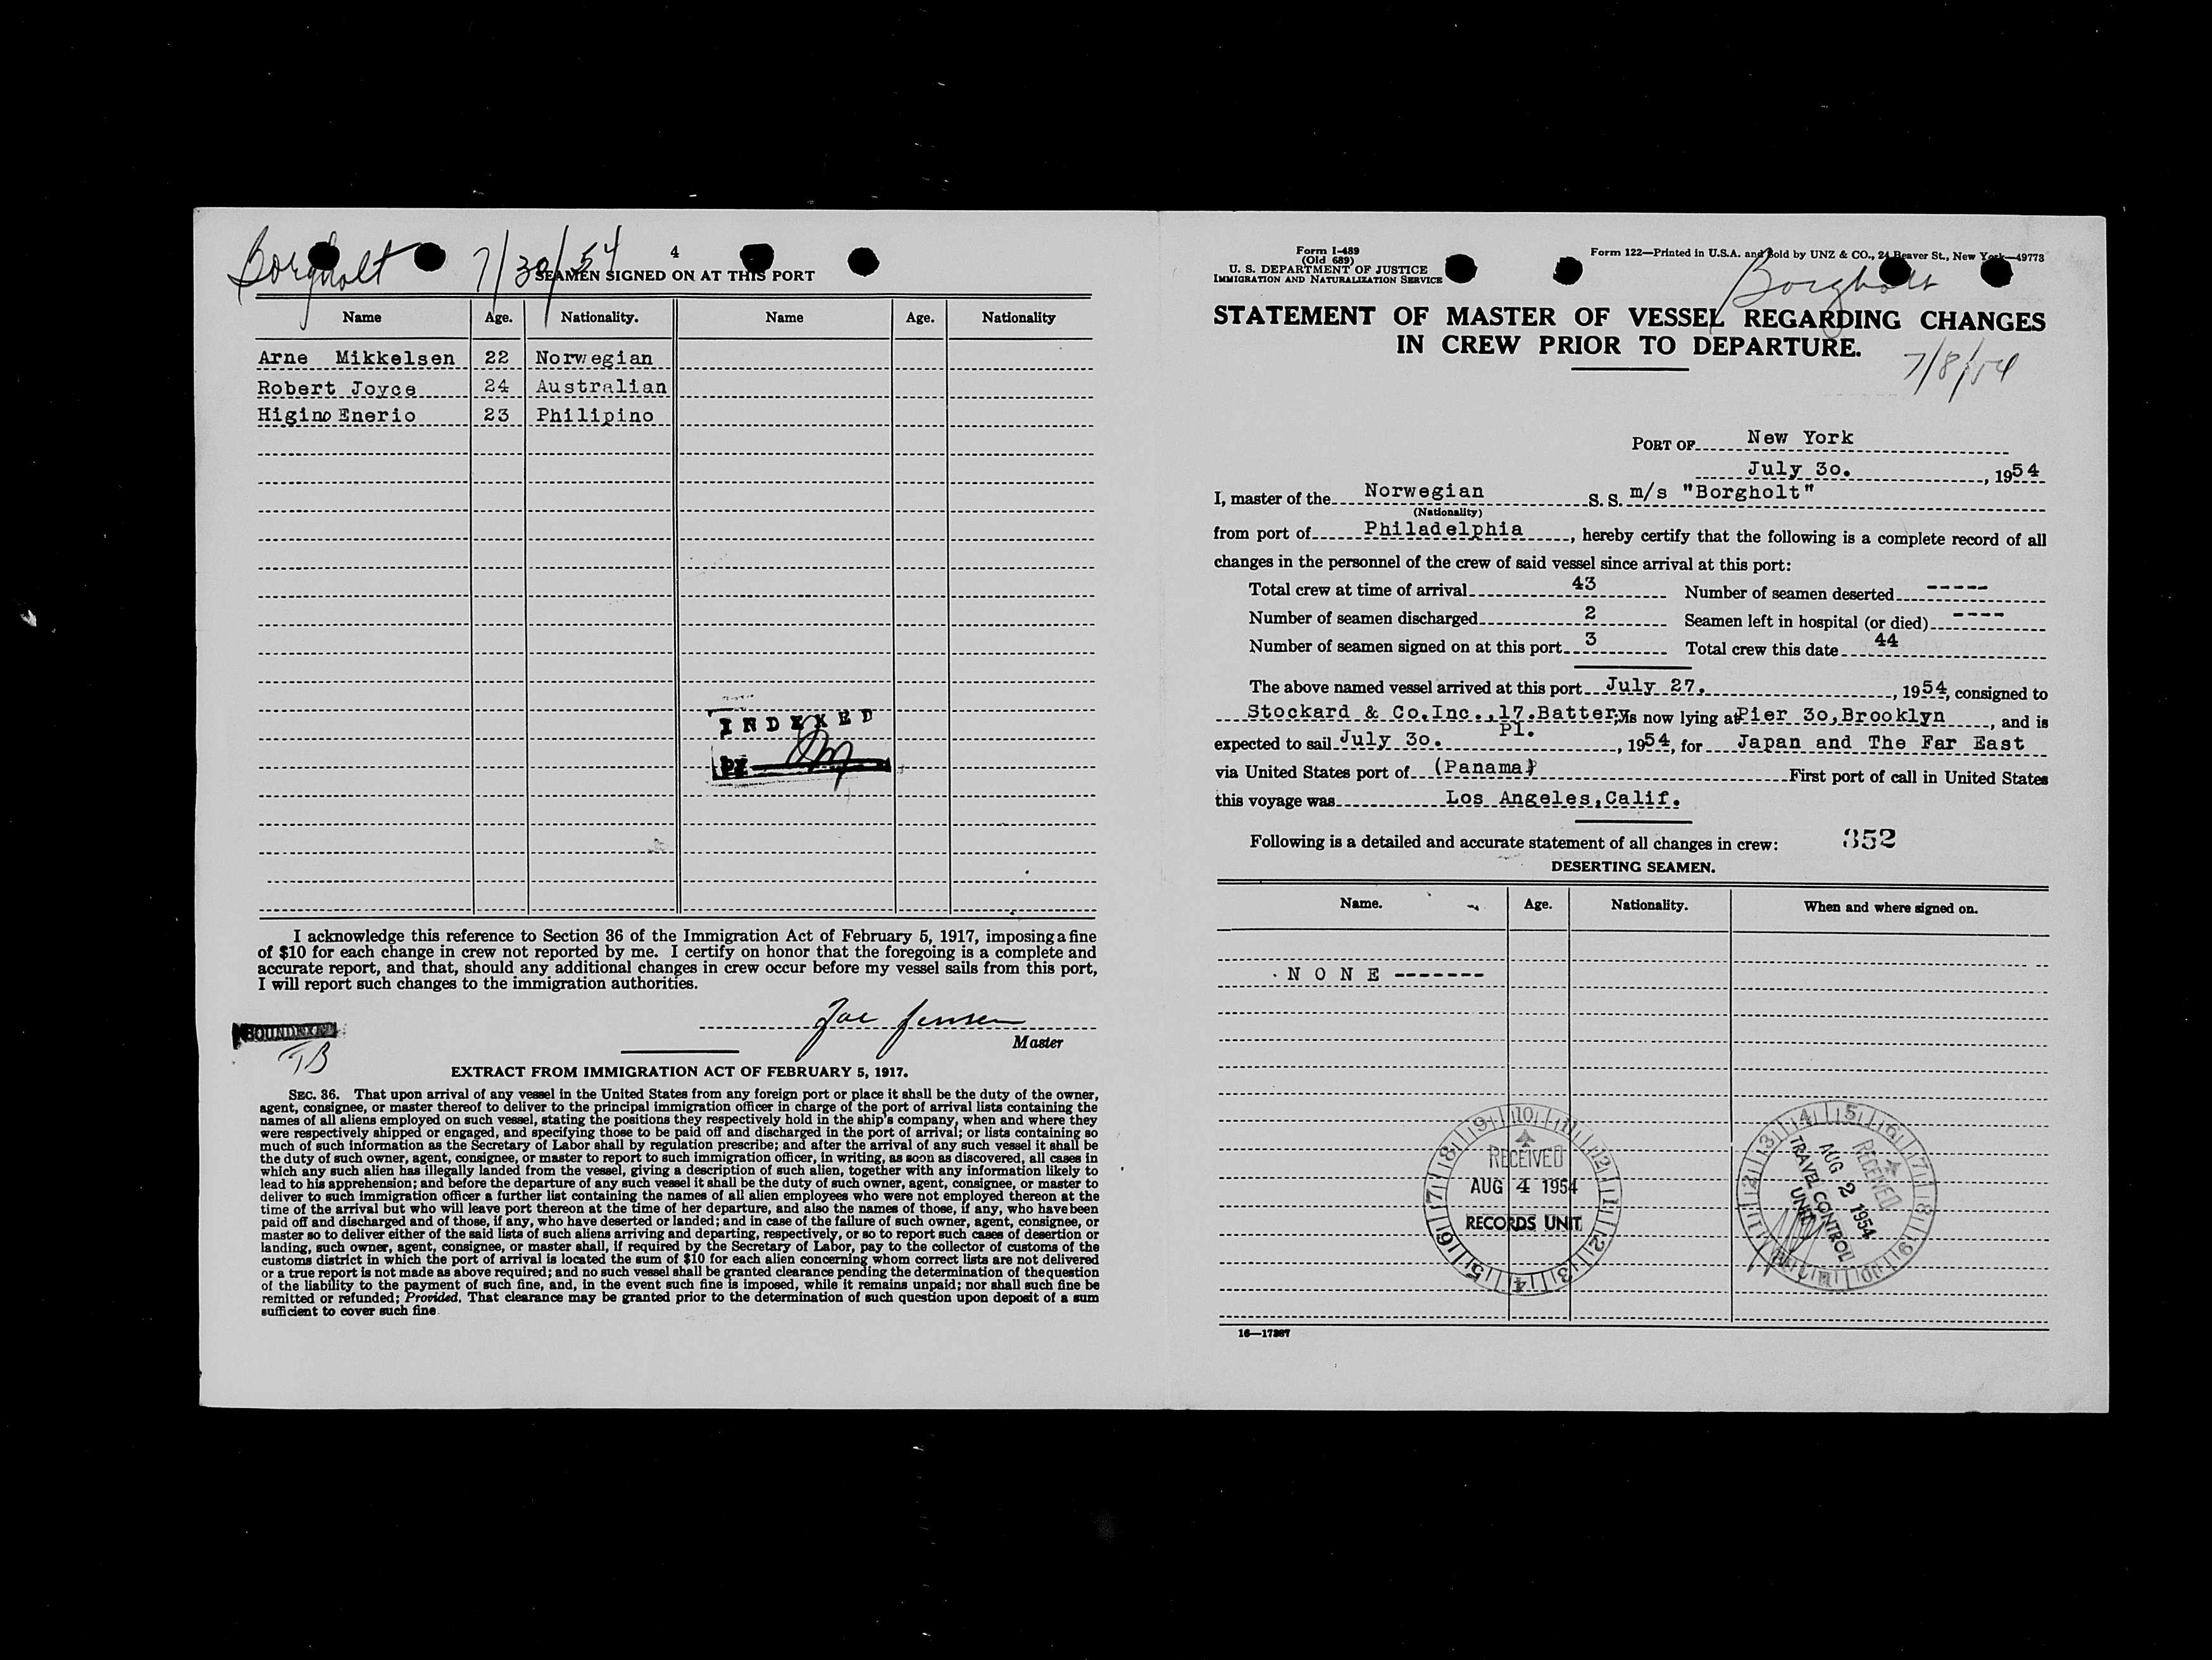 Borgholt 7/30/54
4
SEAMEN SIGNED ON AT THIS PORT
Name Age. Nationality. Name Age. Nationality
Arne Mikkelsen 22 Norwegian
Robert Joyce 24 Australian
Higino Enerio 23 Philipino
INDEXED
BY
I acknowledge this reference to Section 36 of the Immigration Act of February 5, 1917, imposing a fine
of $10 for each change in crew not reported by me. I certify on honor that the foregoing is a complete and
accurate report, and that, should any additional changes in crew occur before my vessel sails from this port,
I will report such changes to the immigration authorities.
Jensen
Master
TB
EXTRACT FROM IMMIGRATION ACT OF FEBRUARY 5, 1917.
SEC. 36. That upon arrival of any vessel in the United States from any foreign port or place it shall be the duty of the owner,
agent, consignee, or master thereof to deliver to the principal immigration officer in charge of the port of arrival lists containing the
names of all aliens employed on such vessel, stating the positions they respectively hold in the ship's company, when and where they
were respectively shipped or engaged, and specifying those to be paid off and discharged in the port of arrival; or lists containing so
much of such information as the Secretary of Labor shall by regulation prescribe; and after the arrival of any such vessel it shall be
the duty of such owner, agent, consignee, or master to report to such immigration officer, in writing, as soon as discovered, all cases in
which any such alien has illegally landed from the vessel, giving a description of such alien, together with any information likely to
lead to his apprehension; and before the departure of any such vessel it shall be the duty of such owner, agent, consignee, or master to
deliver to such immigration officer a further list containing the names of all alien employees who were not employed thereon at the
time of the arrival but who will leave port thereon at the time of her departure, and also the names of those, if any, who have been
paid off and discharged and of those, if any, who have deserted or landed; and in case of the failure of such owner, agent, consignee, or
master so to deliver either of the said lists of such aliens arriving and departing, respectively, or so to report such cases of desertion or
landing, such owner, agent, consignee, or master shall, if required by the Secretary of Labor, pay to the collector of customs of the
customs district in which the port of arrival is located the sum of $10 for each alien concerning whom correct lists are not delivered
or a true report is not made as above required; and no such vessel shall be granted clearance pending the determination of the question
of the liability to the payment of such fine, and, in the event such fine is imposed, while it remains unpaid; nor shall such fine be
remitted or refunded; Provided, That clearance may be granted prior to the determination of such question upon deposit of a sum
sufficient to cover such fine.
Form I-489
(Old 689)
U. S. DEPARTMENT OF JUSTICE
IMMIGRATION AND NATURALIZATION SERVICE
Form 122—Printed in U.S.A. and Sold by UNZ & CO., 24 Beaver St., New York—49773
Borgholt
STATEMENT OF MASTER OF VESSEL REGARDING CHANGES
IN CREW PRIOR TO DEPARTURE.
7/8/54
PORT OF New York
July 30. , 1954
I, master of the Norwegian S. S. m/s "Borgholt"
(Nationality)
from port of Philadelphia , hereby certify that the following is a complete record of all
changes in the personnel of the crew of said vessel since arrival at this port:
Total crew at time of arrival 43 Number of seamen deserted -----
Number of seamen discharged 2 Seamen left in hospital (or died) ----
Number of seamen signed on at this port 3 Total crew this date 44
The above named vessel arrived at this port July 27. , 1954, consigned to
Stockard & Co.Inc.,17.Battery Pl. is now lying at Pier 30,Brooklyn , and is
expected to sail July 30. , 1954, for Japan and The Far East
via United States port of (Panama) First port of call in United States
this voyage was Los Angeles,Calif.
Following is a detailed and accurate statement of all changes in crew: 352
DESERTING SEAMEN.
Name. Age. Nationality. When and where signed on.
N O N E -------
RECEIVED
AUG 4 1954
RECORDS UNIT
RECEIVED
AUG 2 1954
TRAVEL CONTROL
UNIT
16—17387